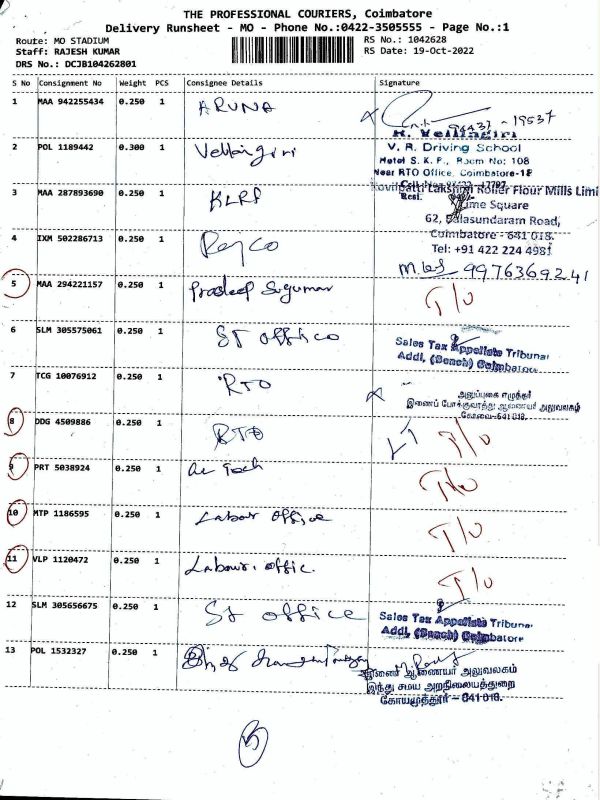 THE PROFESSIONAL COURIERS, Coimbatore
Delivery Runsheet - MO - Phone No.:0422-3505555 - Page No.:1
Route: MO STADIUM
Staff: RAJESH KUMAR
DRS No.: DCJB104262801
RS No.: 1042628
RS Date: 19-Oct-2022
S No Consignment No Weight PCS Consignee Details Signature
1 MAA 942255434 0.250 1 ARUNA
94437 - 19537
2 POL 1189442 0.300 1 Vellingiri
K. Vellingiri
V. R. Driving School
Hotel S. K. P., Room No: 108
Near RTO Office, Coimbatore-18
3 MAA 287893690 0.250 1 KLRF
Kovilpatti Lakshmi Roller Flour Mills Limi
Lime Square
62, Balasundaram Road,
Coimbatore - 641 018.
Tel: +91 422 224 4981
4 IXM 502286713 0.250 1
9976369241
5 MAA 294221157 0.250 1 Pradeep Sugumar T/O
6 SLM 305575061 0.250 1 ST office
Sales Tax Appellate Tribunal
Addl. (Bench) Coimbatore.
7 TCG 10076912 0.250 1 RTO
அனுப்புகை எழுத்தர்
இணைப் போக்குவரத்து ஆணையர் அலுவலகம்
கோவை-641 018.
8 DDG 4509886 0.250 1 RTO T/O
9 PRT 5038924 0.250 1 T/O
10 MTP 1186595 0.250 1 Labour office T/O
11 VLP 1120472 0.250 1 Labour. offic. T/O
12 SLM 305656675 0.250 1 ST office
Sales Tax Appellate Tribunal
Addl. (Bench) Coimbatore
13 POL 1532327 0.250 1
இணை ஆணையர் அலுவலகம்
இந்து சமய அறநிலையத்துறை
கோயமுத்தூர் - 641 018.